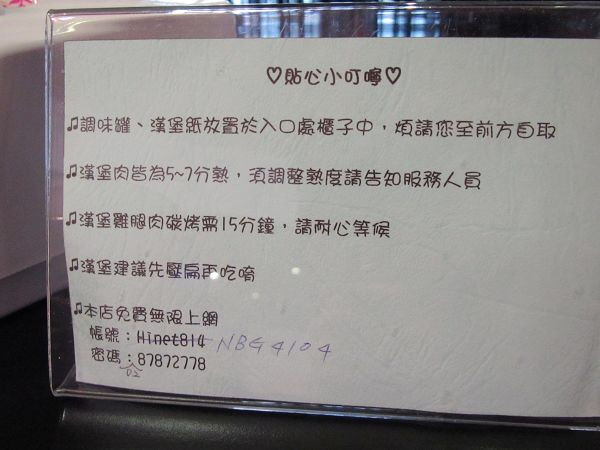 ♡貼心小叮嚀♡
♫調味罐、漢堡紙放置於入口處櫃子中，煩請您至前方自取
♫漢堡肉皆為5~7分熟，須調整熟度請告知服務人員
♫漢堡雞腿肉碳烤需15分鐘，請耐心等候
♫漢堡建議先壓扁再吃唷
♫本店免費無限上網
帳號：Hinet814 NBG4104
密碼：87872778
02